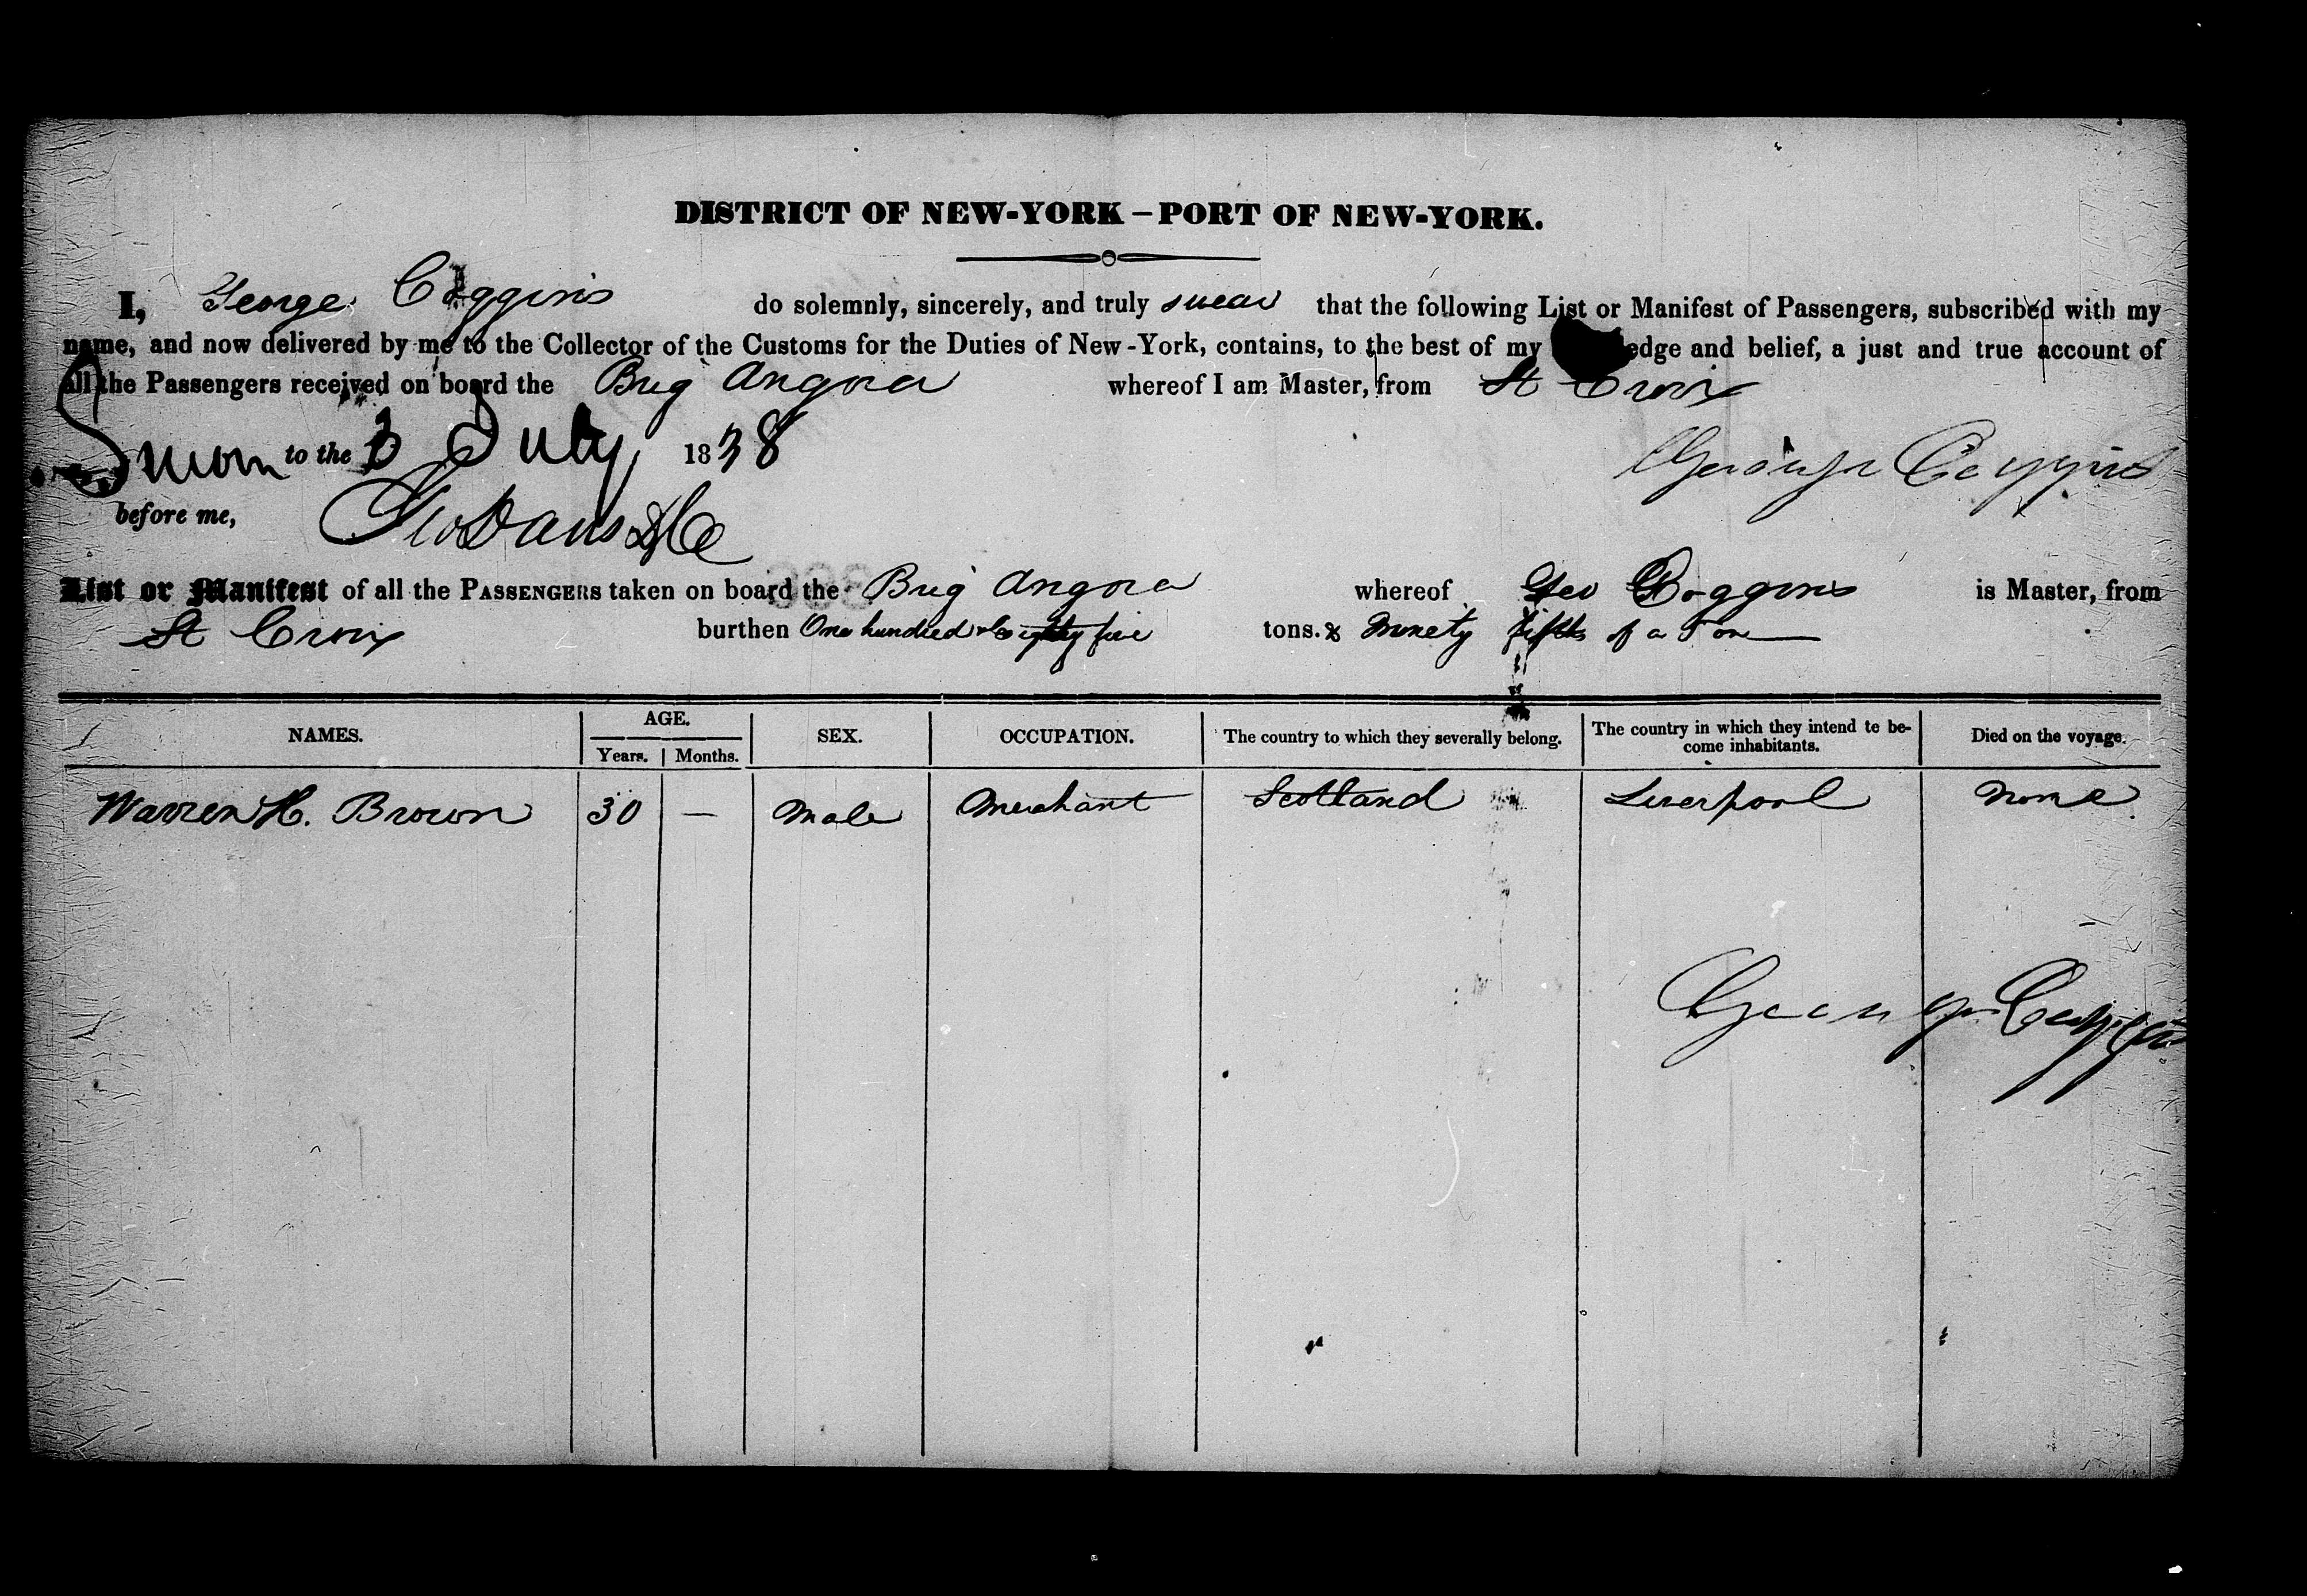 DISTRICT OF NEW-YORK – PORT OF NEW-YORK.
I, George Coggins do solemnly, sincerely, and truly swear that the following List or Manifest of Passengers, subscribed with my
name, and now delivered by me to the Collector of the Customs for the Duties of New-York, contains, to the best of my edge and belief, a just and true account of
all the Passengers received on board the Brig Angora whereof I am Master, from St Croix
Sworn to the 3 July 1838
George Coggins
before me,
List or Manifest of all the PASSENGERS taken on board the Brig Angora whereof Geo Coggins is Master, from
St Croix burthen One hundred & Eighty five tons. & Ninety fifths of a Ton
NAMES. AGE. Years. Months. SEX. OCCUPATION. The country to which they severally belong. The country in which they intend te be-
come inhabitants. Died on the voyage.
Warren H. Brown 30 — Male Merchant Scotland Liverpool None
George Coggins